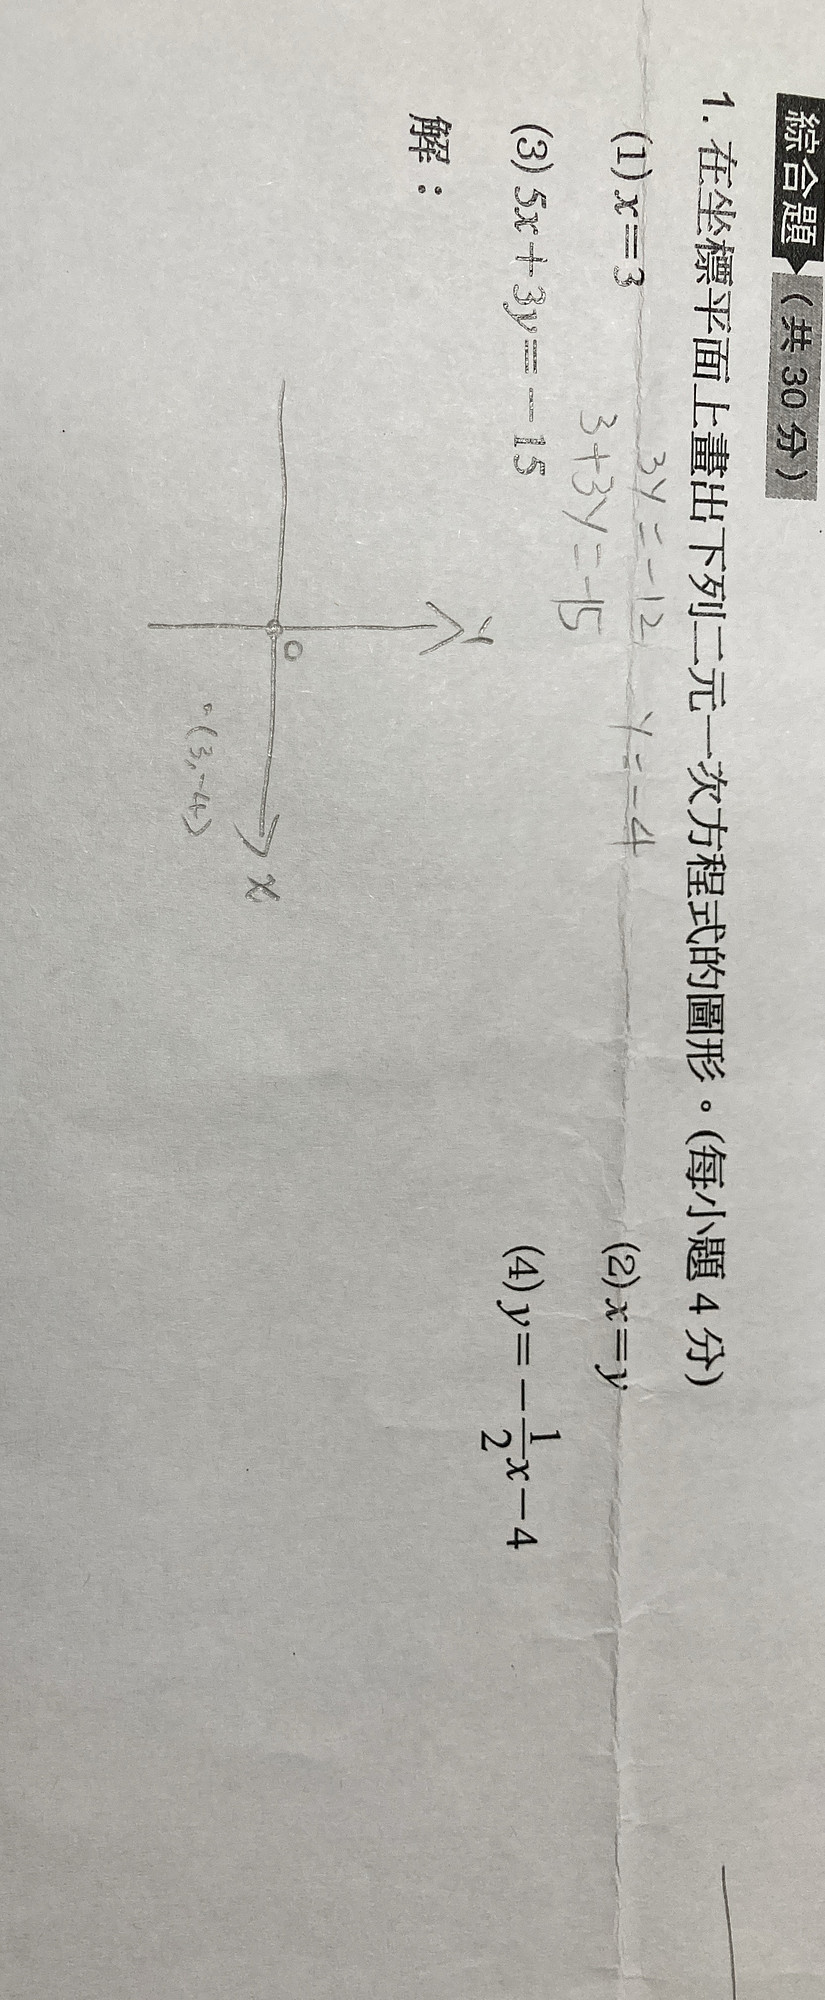 綜合題 (共 30 分)
1. 在坐標平面上畫出下列二元一次方程式的圖形。(每小題 4 分)
(1) x=3 (2) x=y
3y=-12 y=-4
3+3y=-15
(3) 5x+3y=-15 (4) y=-1/2x-4
解：
y
O
x
(3,-4)